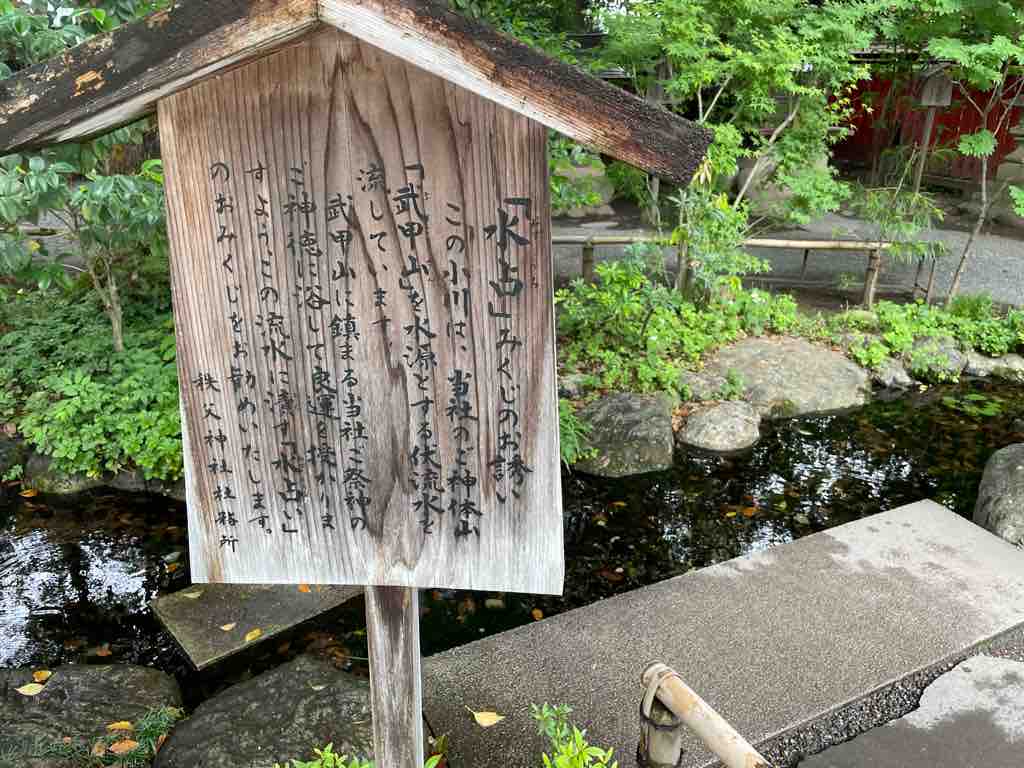 「水占」みくじのお誘い
この小川は、当社のご神体山
「武甲山」を水源とする伏流水を
流しています。
武甲山に鎮まる当社ご祭神の
ご神徳に浴して良運を授かりま
すよう、この流水に浸す「水占い」
のおみくじをお勧めいたします。
秩父神社社務所